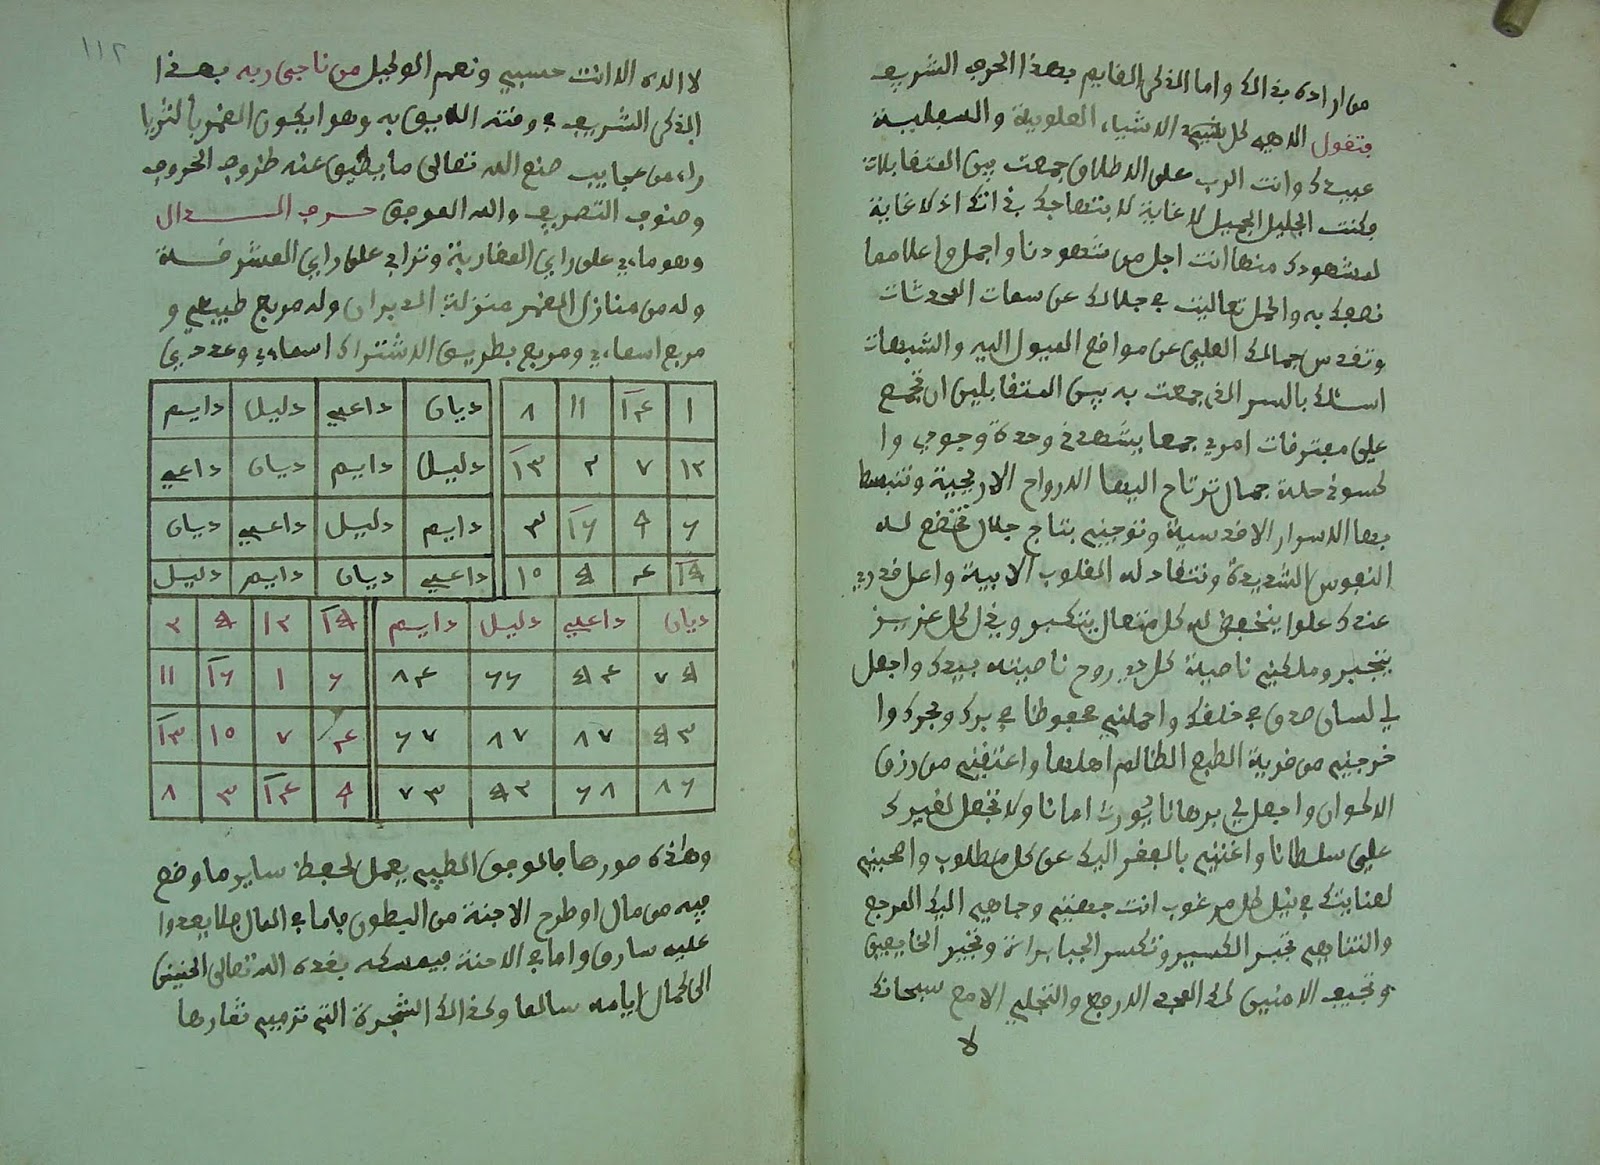 من اراده بذالك واما الذكر القايم بهذا الحرف الشريف
فتقول الاهي لكل الاشياء العلوية والسفلية
عبيدك وانت الرب على الاطلاق جمعت بين المتقابلات
فكنت الجليل الجميل لا غاية لابتهاجك بذاتك اذ لا غاية
لشهودك منها انت اجل من شهودنا واجمل واعلا مما
نصفك به واكمل تعاليت في جلالك عن سمات المحدثات
وتقدس جمالك العلي عن مواقع الميول اليه والشبهات
اسئلك بالسر الذي جمعت به بين المتقابلين ان تجمع
علي مفترقات امري جمعا يشهدني وحدة وجودي وا
كسوني حلة جمال ترتاح اليها الارواح الاريحية وتنبسط
بها الاسرار الاقدسية وتوجني بتاج جلال تخضع له
النفوس الشديدة وتنقاد له القلوب الابية واعل قدري
عندك علوا ينخفض له كل متعال يتكبر ويذل كل عزيز
يتجبر وملكني ناصية كل ذي روح ناصيته بيدك واجعل
لي لسان صدق في خلقك واحملني محفوظا في برك وبحرك وا
خرجني من قرية الطبع الظالم اهلها واعتقني من رق
الاكوان واجعل لي برهانا يورث امانا ولا تجعل لغيرك
علي سلطانا واغنني بالفقر اليك عن كل مطلوب واصحبني
لعنايتك في نيل كل مرغوب انت جهتي وجاهي اليك المرجع
والتناهي تجبر الكسير وتكسر الجبابرة وتجير الخايفين
وتخيف الامنين لك المجد الارفع والتجلي الاجمع سبحانك
لا
١١٢
لا اله الا انت حسبي ونعم الوكيل من ناجى ربه بهذا
الذكر الشريف في وقته الايق به وهو ايكون القمر بالثريا
راء من عجايب صنع الله تعالى ما يضيق عنه ظروف الحروف
وصنوف التصريف والله الموفق حرف الدال
وهو مائي على راي المغاربة وترابي على راي المشرقة
وله من منازل القمر منزلة الدبران وله مربع طبيعي و
مربع اسمائي ومربع بطريق الاشتراك اسمائي وعددي
ديان داعي دليل دايم
دليل دايم ديان داعي
دايم دليل داعي ديان
داعي ديان دايم دليل
ديان داعي دليل دايم
وهاذه صورها بالموفق الطييم يعمل لحفظ ساير ما وضع
فيه من مال او طرح الاجنة من البطون فاما في المال فلا يعدوا
عليه سارق واما في الاجنة فيمسكه بقدرة الله تعالى الجنين
الى كمال ايامه سالما وكذالك الشجرة التي ترمي ثمارها